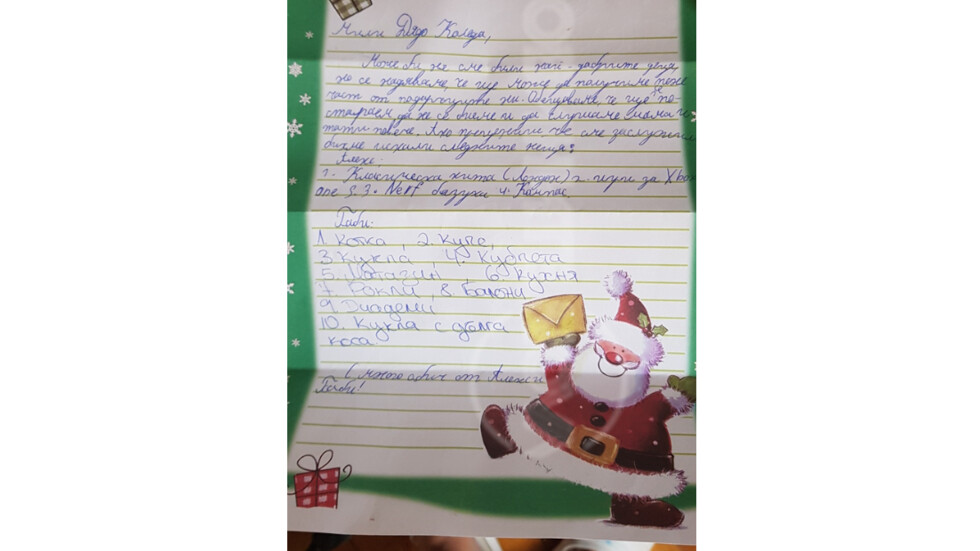 Мили Дядо Коледа,
Може би не сме били най-добрите деца,
но се надяваме, че ще може да получим поне
част от подаръците ни. Обещаваме, че ще се по-
стараем да не се бием и да слушаме мама и
тати повече. Ако прецениш че сме заслужили
бихме искали следните неща:
Алекс:
1. Класическа китара 2. игри за Xbox
one S. 3. Nerf базука 4. Компас.
Габи:
1. Котка, 2. Куче,
3. Кукла, 4. Кубчета
5. Магазин, 6. Кухня
7. Рокли, 8. Балони
9. Диадеми
10. Кукла с дълга
коса
С много обич от Алекс и
Габи!